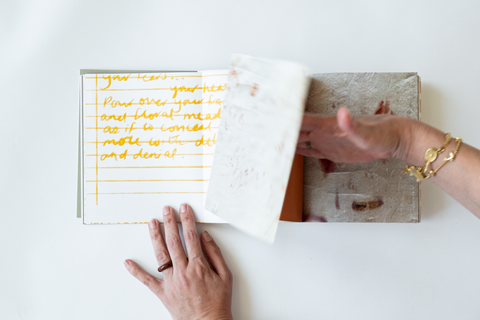 your tears...
your hea
Pour over your b
and floral mead
as if to conceal
mole with del
and denial.